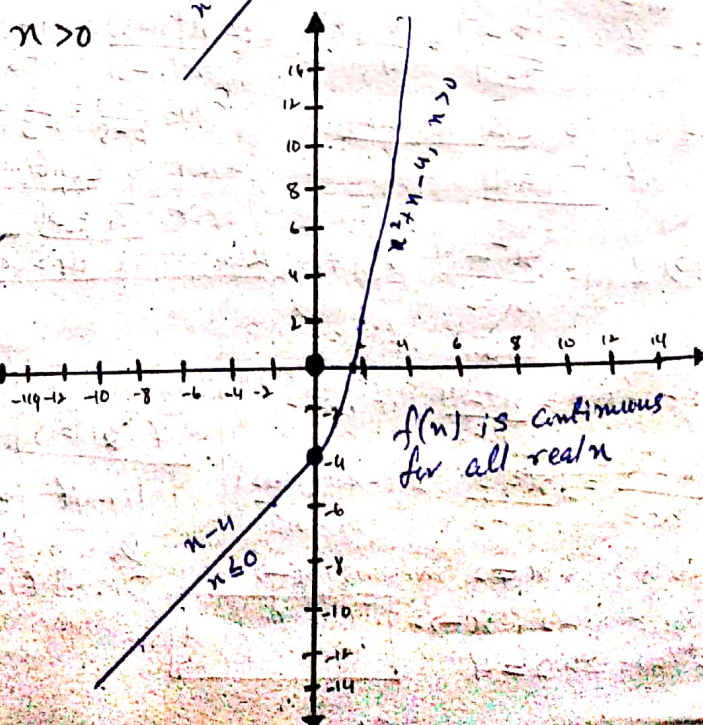 x
x >0
14
12
10
8
6
4
2
x²+x-4, x>0
-14 -12 -10 -8 -6 -4 -2
4 6 8 10 12 14
-2
-4
-6
-8
-10
-12
-14
f(x) is continuous
for all real x
x-4
x≤0